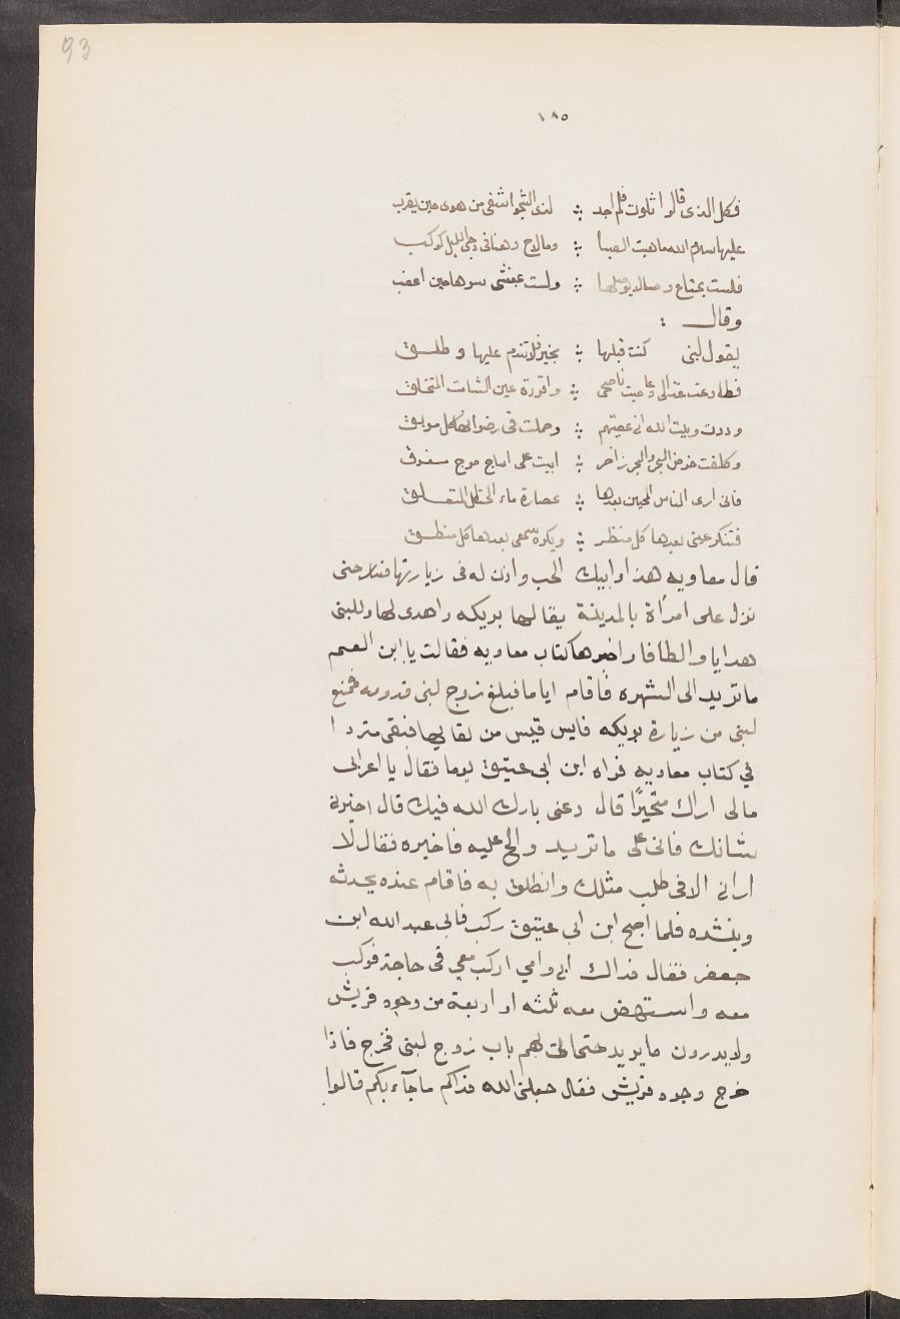 93
١٨٥
فكل الذى قالوا تلوت فلم اجد ؞ لذى الشجو اشفى من هوى حين يقرب
عليها سلام الله ما هبت الصبا ؞ وما لاح وهنا فى دجى الليل كوكب
فلست بمبتاع وصالا بوصلها ؞ ولست بمفشى سرها حين اغضب
وقال :
يقول لبنى كنت قبلها ؞ بخير فلا تندم عليها وطلق
فطاوعت عذالى وعاصيت ناصحى ؞ واقررة عين الشامت المتخلق
وددت وبيت الله انى عصيتهم ؞ وحملت فى رضوانها كل موبق
وكلفت خوض البحر والبحر زاخر ؞ ابيت على اماج موج مغرق
فانى ارى الناس المحبين بعدها ؞ عصارة ماء الحنظل المتفلق
فتنكر عينى بعدها كل منظر ؞ ويكره سمعى بعدها كل منطق
قال معاويه هذا وابيك الحب واذن له فى زيارتها فسار حتى
نزل على امرأة بالمدينة يقالها بريكه واهدى لها وللبنى
هدايا والطافا واخبرها كتاب معاويه فقالت يا ابن العم
ما تريد الى الشهره فاقام اياما فبلغ زوج لبنى قدومه فمنع
لبنى من زيارة بريكه فايس قيس من لقايها فبقى مترددا
في كتاب معاويه فراه ابن ابى عتيق يوما فقال يا اعرابى
مالى اراك متحيرًا قال دعنى بارك الله فيك قال اخبرنى
بشانك فانى على ما تريد والح عليه فاخبره فقال لا
ارانى الا فى طلب مثلك وانطلق به فاقام عنده يحدثه
وينشده فلما اصبح ابن ابى عتيق ركب فاتى عبد الله ابن
جعفر فقال فداك ابى وامي اركب معي فى حاجة فركب
معه واستنهض معه ثلثه او اربعة من وجوه قريش
ولا يدرون ما يريد حتى اتى لهم باب زوج لبنى فخرج فاذا
خرج وجوه قريش فقال جعلنى الله فداكم ما جآء بكم قالوا